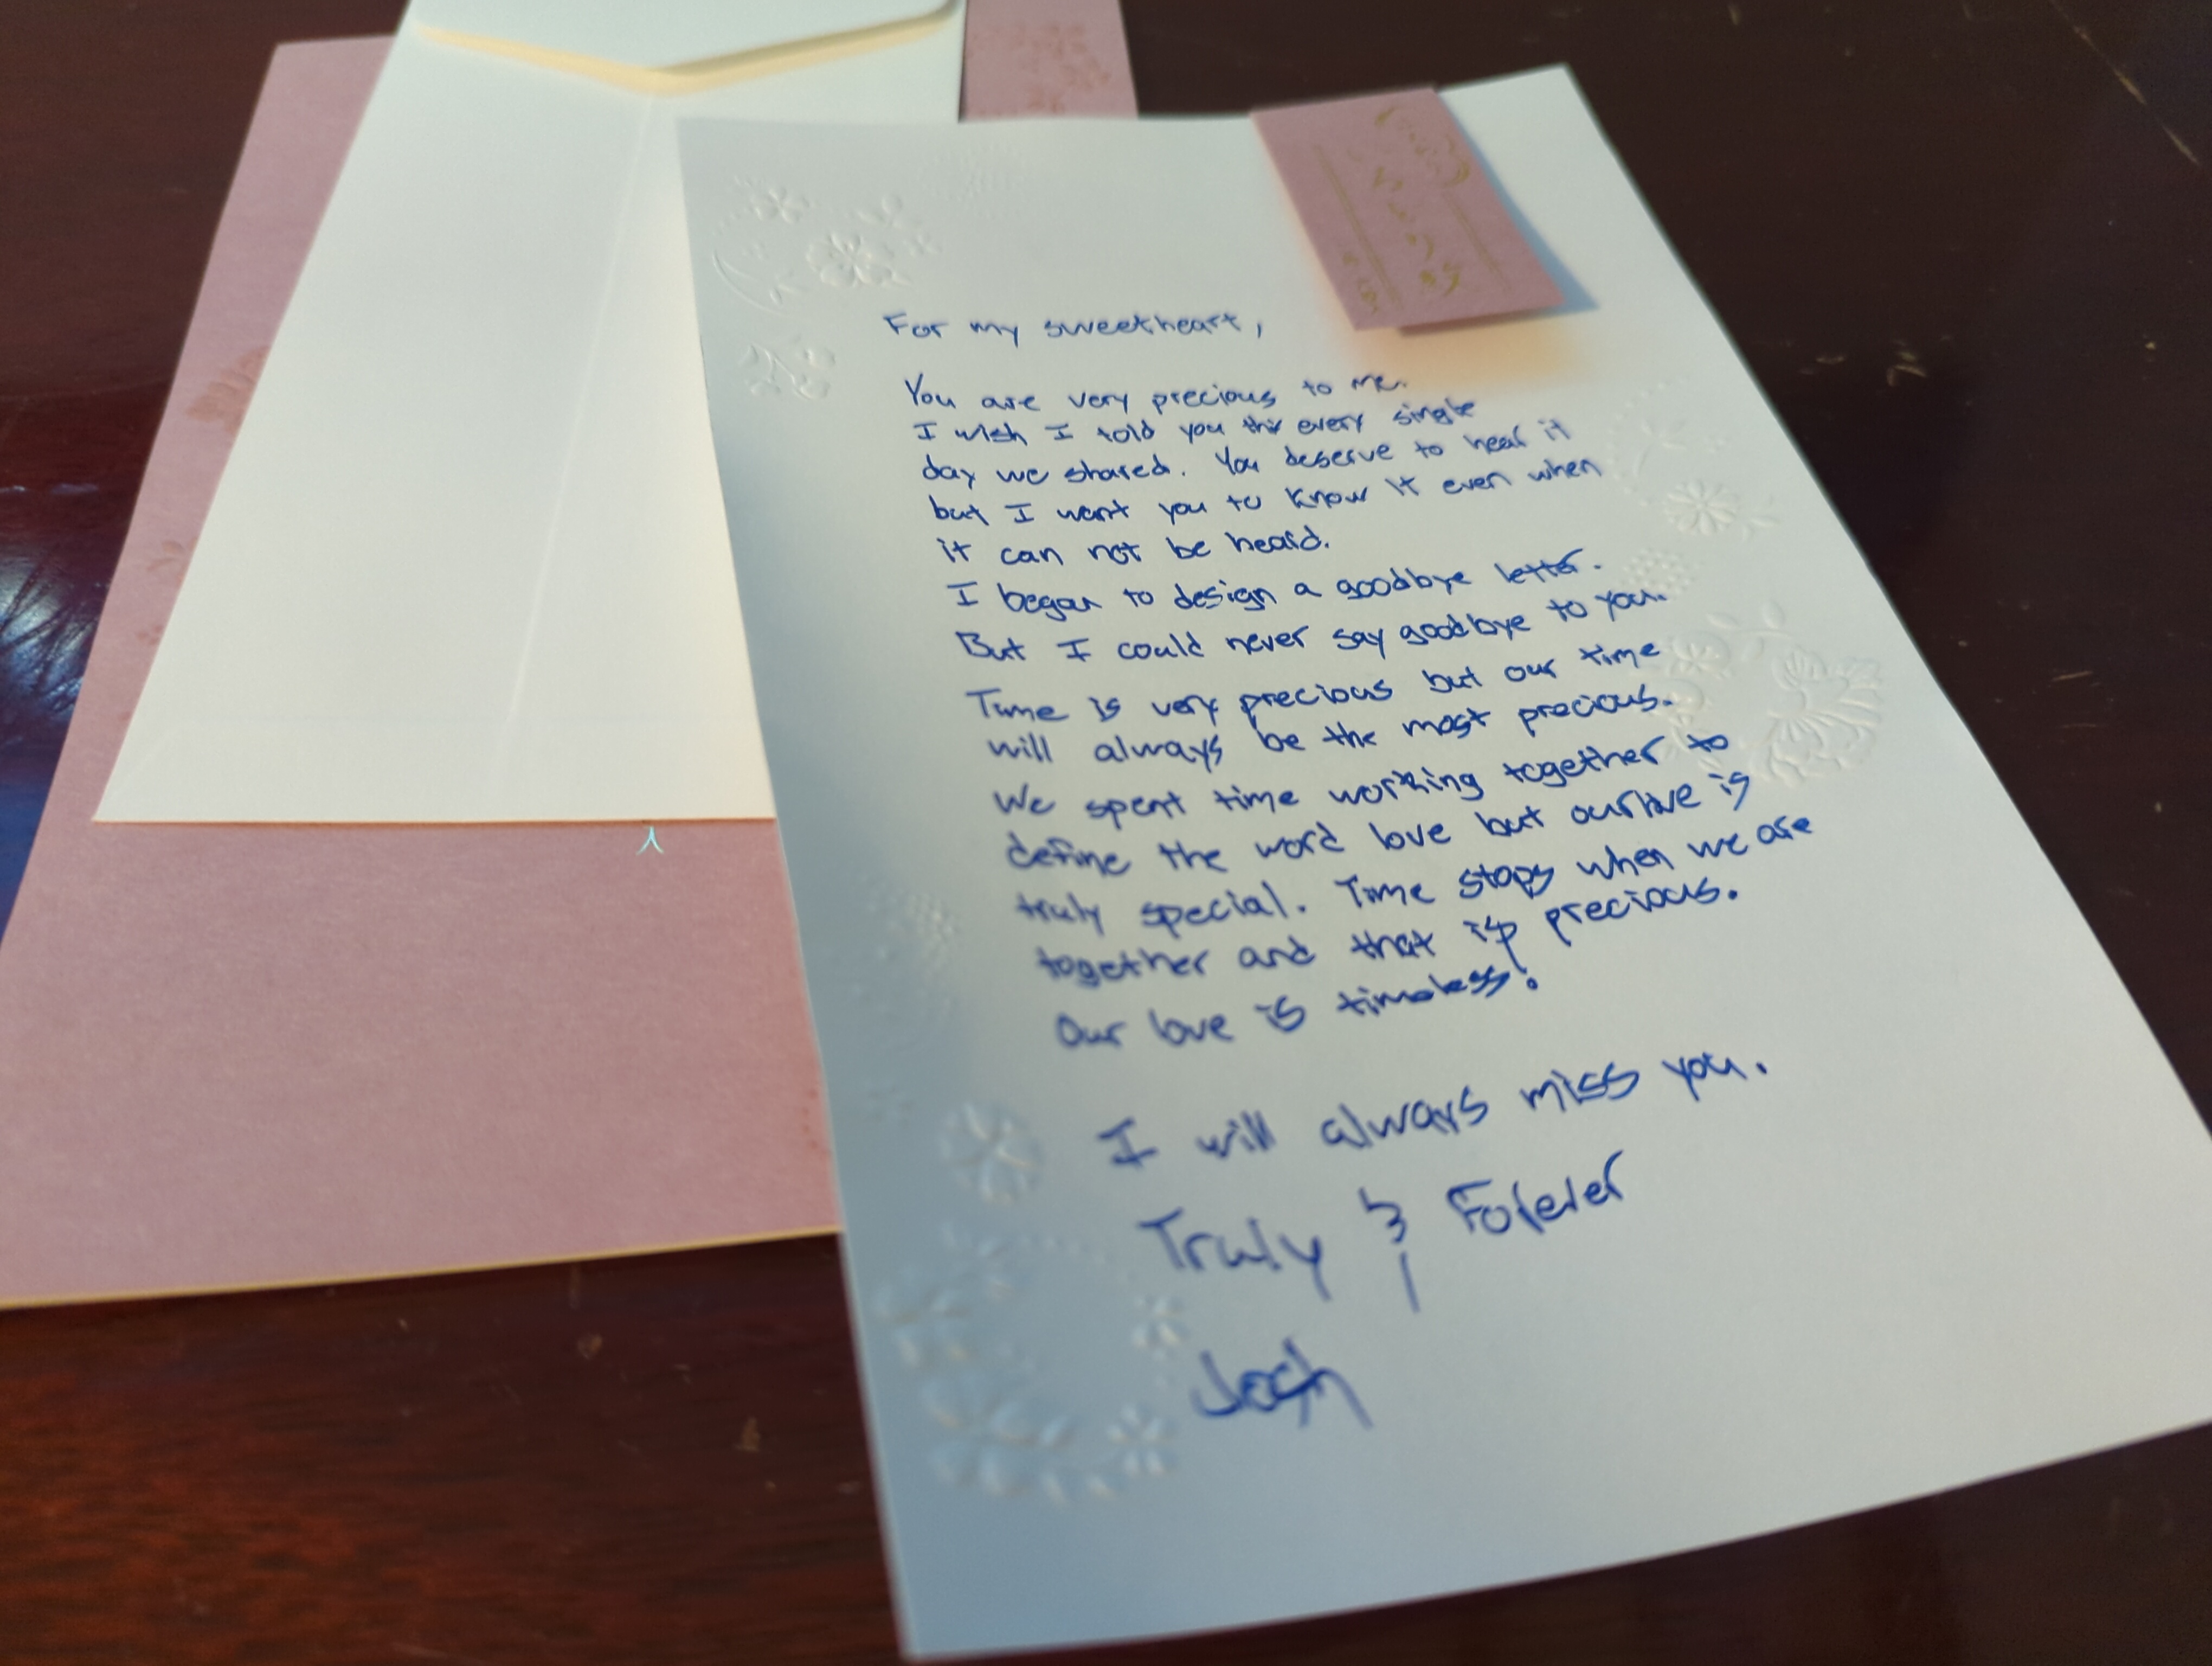 For my sweetheart,
You are very precious to me.
I wish I told you this every single
day we shared. You deserve to hear it
but I want you to know it even when
it can not be heard.
I began to design a goodbye letter.
But I could never say goodbye to you.
Time is very precious but our time
will always be the most precious.
We spent time working together to
define the word love but our love is
truly special. Time stops when we are
together and that is precious.
Our love is timeless!
I will always miss you.
Truly & Forever
Josh